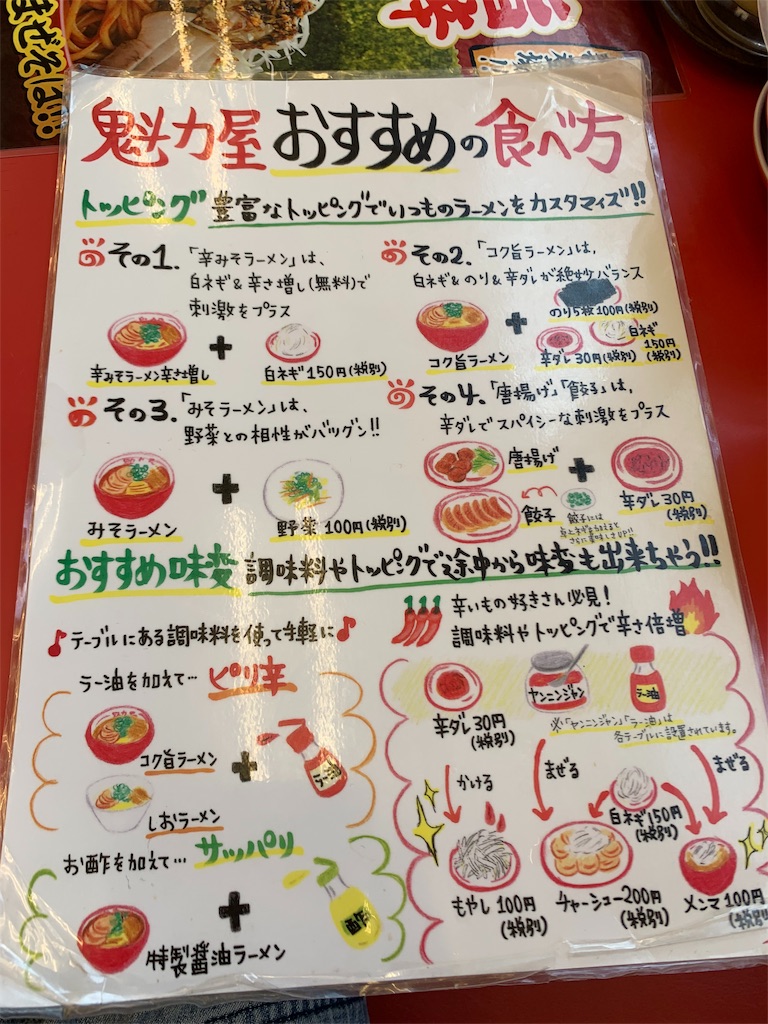 まぜそば!!!
魁力屋おすすめの食べ方
トッピング 豊富なトッピングでいつものラーメンをカスタマイズ!!
その1.「辛みそラーメン」は、
白ネギ&辛さ増し(無料)で
刺激をプラス
辛みそラーメン辛さ増し
+
白ネギ150円(税別)
その2.「コク旨ラーメン」は、
白ネギ&のり&辛ダレが絶妙バランス
コク旨ラーメン
+
のり5枚100円(税別)
辛ダレ30円(税別)
白ネギ
150円
(税別)
その3.「みそラーメン」は、
野菜との相性がバツグン!!
みそラーメン
+
野菜100円(税別)
その4.「唐揚げ」「餃子」は、
辛ダレでスパイシーな刺激をプラス
唐揚げ
餃子
+
餃子には
さらに美味しさUP!!
辛ダレ30円
(税別)
おすすめ味変 調味料やトッピングで途中から味変も出来ちゃう!!
♪テーブルにある調味料を使って手軽に♪
ラー油を加えて…ピリ辛
コク旨ラーメン
+
ラー油
しおラーメン
お酢を加えて…サッパリ
+
酢
特製醤油ラーメン
辛いもの好きさん必見!
調味料やトッピングで辛さ倍増
辛ダレ30円
(税別)
ヤンニンジャン
ラー油
※「ヤンニンジャン」「ラー油」は
各テーブルに設置されています。
かける
まぜる
まぜる
白ネギ150円
(税別)
もやし100円
(税別)
チャーシュー200円
(税別)
メンマ100円
(税別)